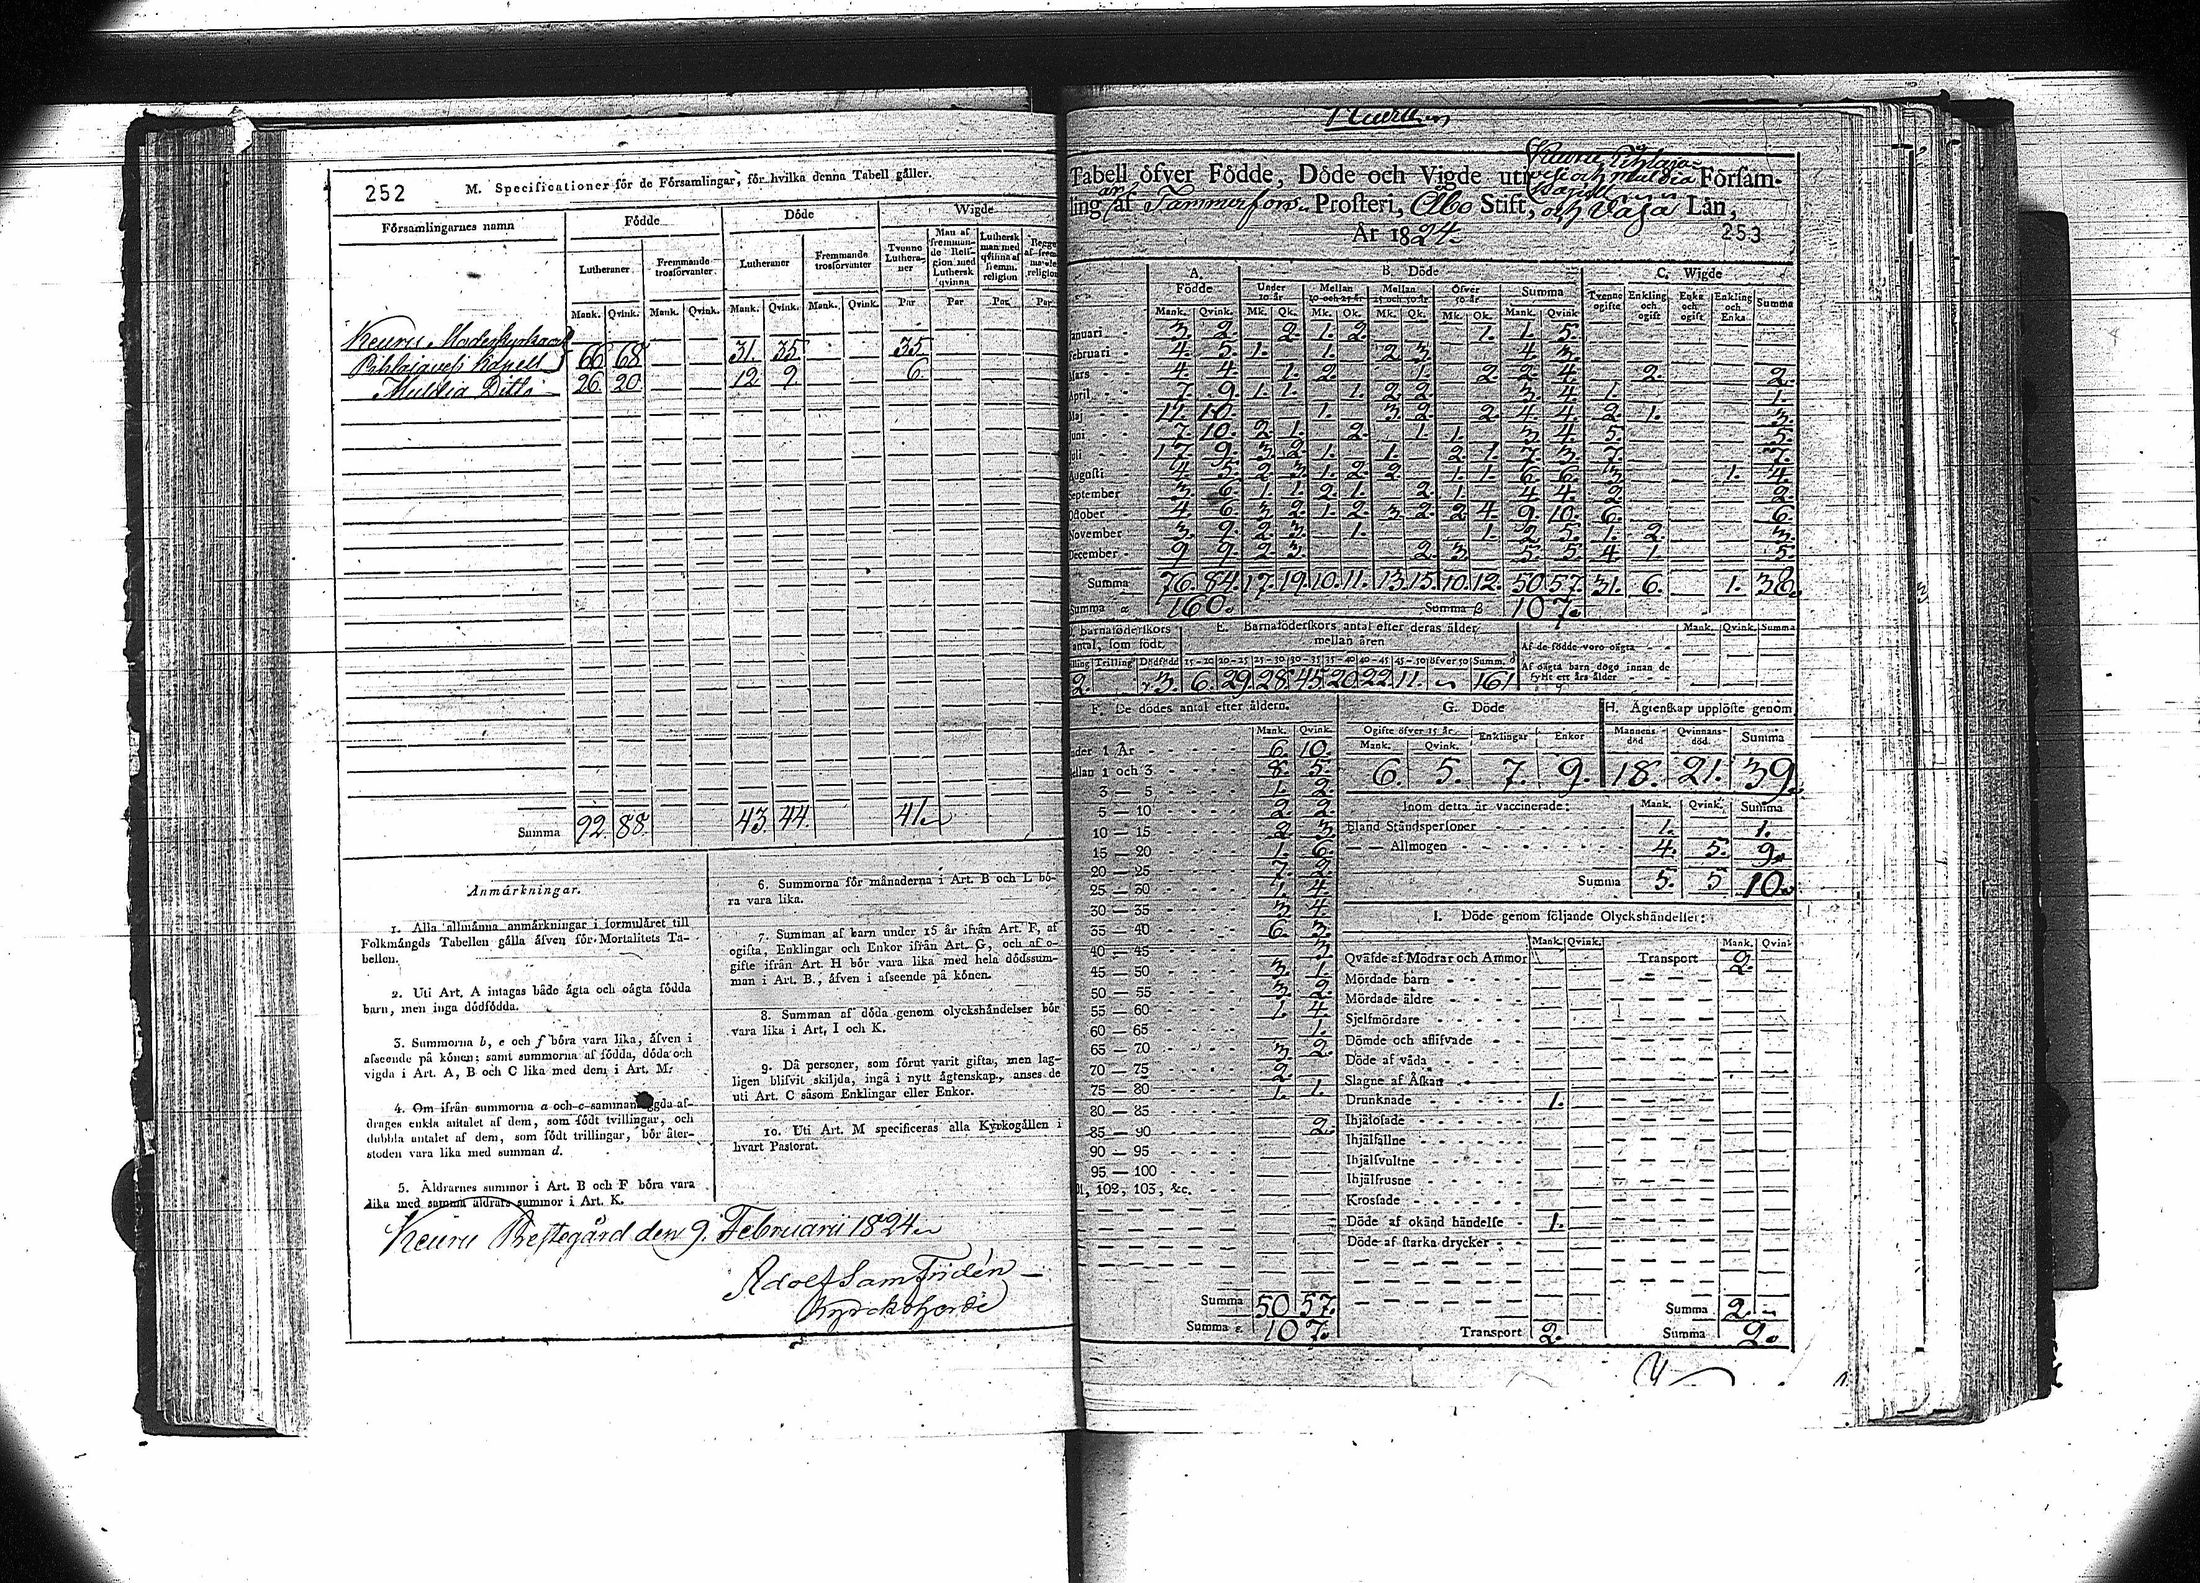 252
M. Specificationer för de Församlingar, för hvilka denna Tabell gäller.
Församlingarnes namn | Födde | Döde | Wigde
Lutheraner | Fremmande trosförvanter | Lutheraner | Fremmande trosförvanter | Tvenne Lutheraner | Man af fremmande Religion med Luthersk qvinna | Luthersk man med qvinna af fremm. religion
Mank. Qvink. Mank. Qvink. Mank. Qvink. Mank. Qvink. Par Par Par Par
Keuru Moderkyrka och
Pihlajavesi Kapell 66 68 31. 35 35
Muldia Ditto 26 20 12 9. 6.
Summa 92. 88. 43 44. 41.
Anmärkningar.
1. Alla allmänna anmärkningar i formuläret till
Folkmängds Tabellen gälla äfven för Mortalitets Ta-
bellen.
2. Uti Art. A intagas både ägta och oägta födda
barn, men inga dödfödda.
3. Summorna b, e och f böra vara lika, äfven i
afseende på könen; samt summorna af födda, döda och
vigda i Art. A, B och C lika med dem i Art. M.
4. Om ifrån summorna a och c sammanlagda af-
drages enkla antalet af dem, som födt tvillingar, och
dubbla antalet af dem, som födt trillingar, bör åter-
stoden vara lika med summan d.
5. Äldrarnes summor i Art. B och F böra vara
lika med samma äldrars summor i Art. K.
6. Summorna för månaderna i Art. B och L bö-
ra vara lika.
7. Summan af barn under 15 år ifrån Art. F, af
ogifta, Enklingar och Enkor ifrån Art. G, och af o-
gifte ifrån Art. H bör vara lika med hela dödssum-
man i Art. B., äfven i afseende på könen.
8. Summan af döda genom olyckshändelser bör
vara lika i Art. I och K.
9. Då personer, som förut varit gifta, men lag-
ligen blifvit skiljda, ingå i nytt ägtenskap, anses de
uti Art. C såsom Enklingar eller Enkor.
10. Uti Art. M specificeras alla Kyrkogällen i
hvart Pastorat.
Keuru Prestegård den 9. Februarii 1824
Adolf Sam Fridén
Kyrckoherde
Keuru
Tabell öfver Födde, Döde och Vigde uti Keuru, Pihlaja-
vesi och Muldia Försam-
ling af Tammerfors Prosteri, Åbo Stift, och Vasa Län,
År 1824.
253
A. Födde | B. Döde | C. Wigde
Under 10 år | Mellan 10 och 25 år | Mellan 25 och 50 år | Öfver 50 år | Summa | Tvenne ogifte | Enkling och ogift | Enka och ogift | Enkling och Enka | Summa
Mank. Qvink. Mk. Qk. Mk. Qk. Mk. Qk. Mk. Qk. Mank. Qvink
Januari 3. 2. 2. 1. 2. 1. 1. 5.
Februari 4. 5. 1. 1. 2 3 4. 3.
Mars 4. 4. 1. 2. 1. 2. 2. 4. 2. 2.
April 7. 9. 1. 1. 1. 2 2. 3. 4. 1. 1.
Maj 1. 3 2. 2. 4. 4. 2. 1. 3.
Juni 7. 10. 2. 1. 2. 1. 1. 3. 4. 5. 5.
Juli 17. 9. 3. 2. 1. 1. 2. 1. 7. 3. 7. 7.
Augusti 4. 5. 2. 3. 1. 2. 2. 1. 1. 6. 6. 3. 1. 4.
September 3. 6. 1. 1. 2. 1. 2. 1. 4. 4. 2. 2.
October 4. 6. 3. 2. 1. 2. 3. 2. 2. 4. 9. 10. 6. 6.
November 3. 9. 2. 3. 1. 1. 2. 5. 1. 2. 3.
December 9 9. 2 3. 2. 3. 5. 5. 4. 1. 5.
Summa 76. 84. 17. 19. 10. 11. 13. 15. 10. 12. 50. 57. 31. 6. 1. 38.
Summa α 160. Summa β 107.
Barnaföderskors antal, som födt. | E. Barnaföderskors antal efter deras ålder mellan åren | Mank. Qvink. Summa
Af de födde voro oägta
Af oägta barn dogo innan de fyllt ett års ålder
Trilling Dödfödd 15-20 20-25 25-30 30-35 35-40 40-45 45-50 öfver 50 Summ. d
2. 3. 6. 29. 28. 45. 20. 22. 11. 161
F. De dödes antal efter åldern.
Mank. Qvink.
Under 1 År 6. 10.
Mellan 1 och 3 8. 5.
3 — 5 1. 2.
5 — 10 2. 2.
10 — 15 2. 3
15 — 20 1. 6.
20 — 25 7. 2.
25 — 30 1. 4.
30 — 35 3 4.
35 — 40 6. 3.
40 — 45 3
45 — 50 3. 1.
50 — 55 3. 2.
55 — 60 1. 4.
60 — 65 1.
65 — 70 3. 2.
70 — 75 2.
75 — 80 1. 1.
80 — 85
85 — 90 2.
90 — 95
95 — 100
101, 102, 103, &c.
Summa 50 57.
Summa ε. 107.
G. Döde
Ogifte öfver 15 år. | Enklingar | Enkor
Mank. Qvink.
6. 5. 7. 9.
H. Ägtenskap upplöste genom
Mannens död | Qvinnans död. | Summa
18. 21. 39
Inom detta år vaccinerade: Mank. Qvink. Summa
Bland Ståndspersoner 1. 1.
— — Allmogen 4. 5. 9.
Summa 5. 5 10.
I. Döde genom följande Olyckshändelser:
Mank. Qvink. Mank. Qvink
Qväfde af Mödrar och Ammor Transport 2.
Mördade barn
Mördade äldre
Sjelfmördare
Dömde och aflifvade
Döde af våda
Slagne af Åskan
Drunknade 1.
Ihjälsofade
Ihjälfallne
Ihjälsvultne
Ihjälfrusne
Krossade
Döde af okänd händelse 1.
Döde af starka drycker
Summa 2.
Transport 2. Summa 2.